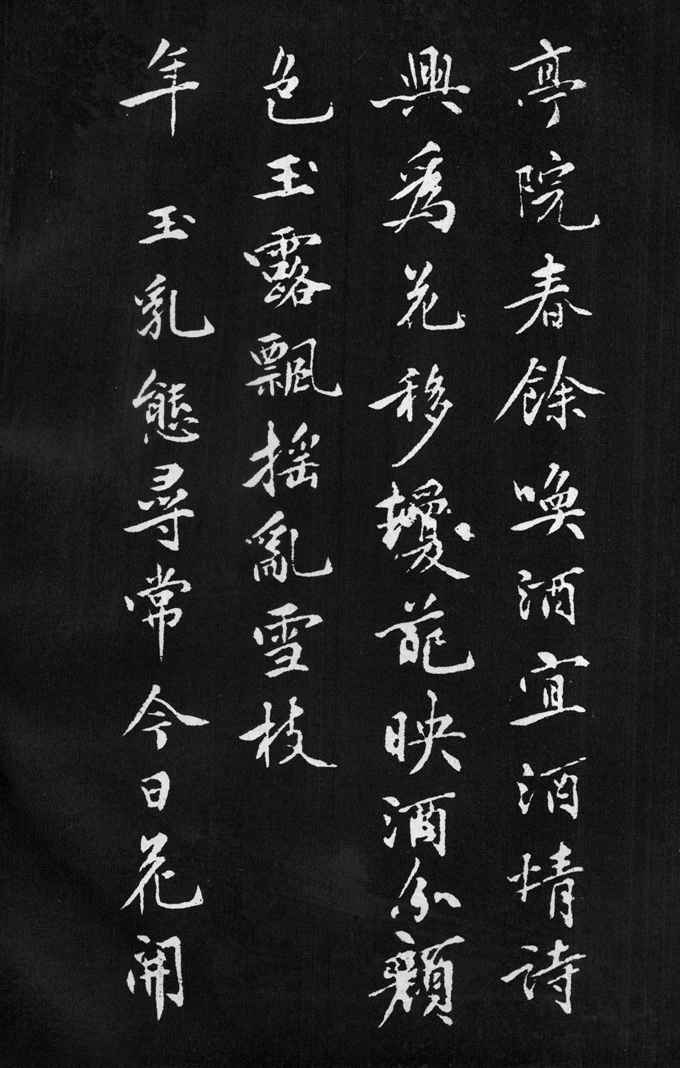 亭院春餘喚酒宜酒情詩
興爲花移擾花映酒分顏
色玉露飄摇亂雪枝
年 玉乳態尋常今日花開